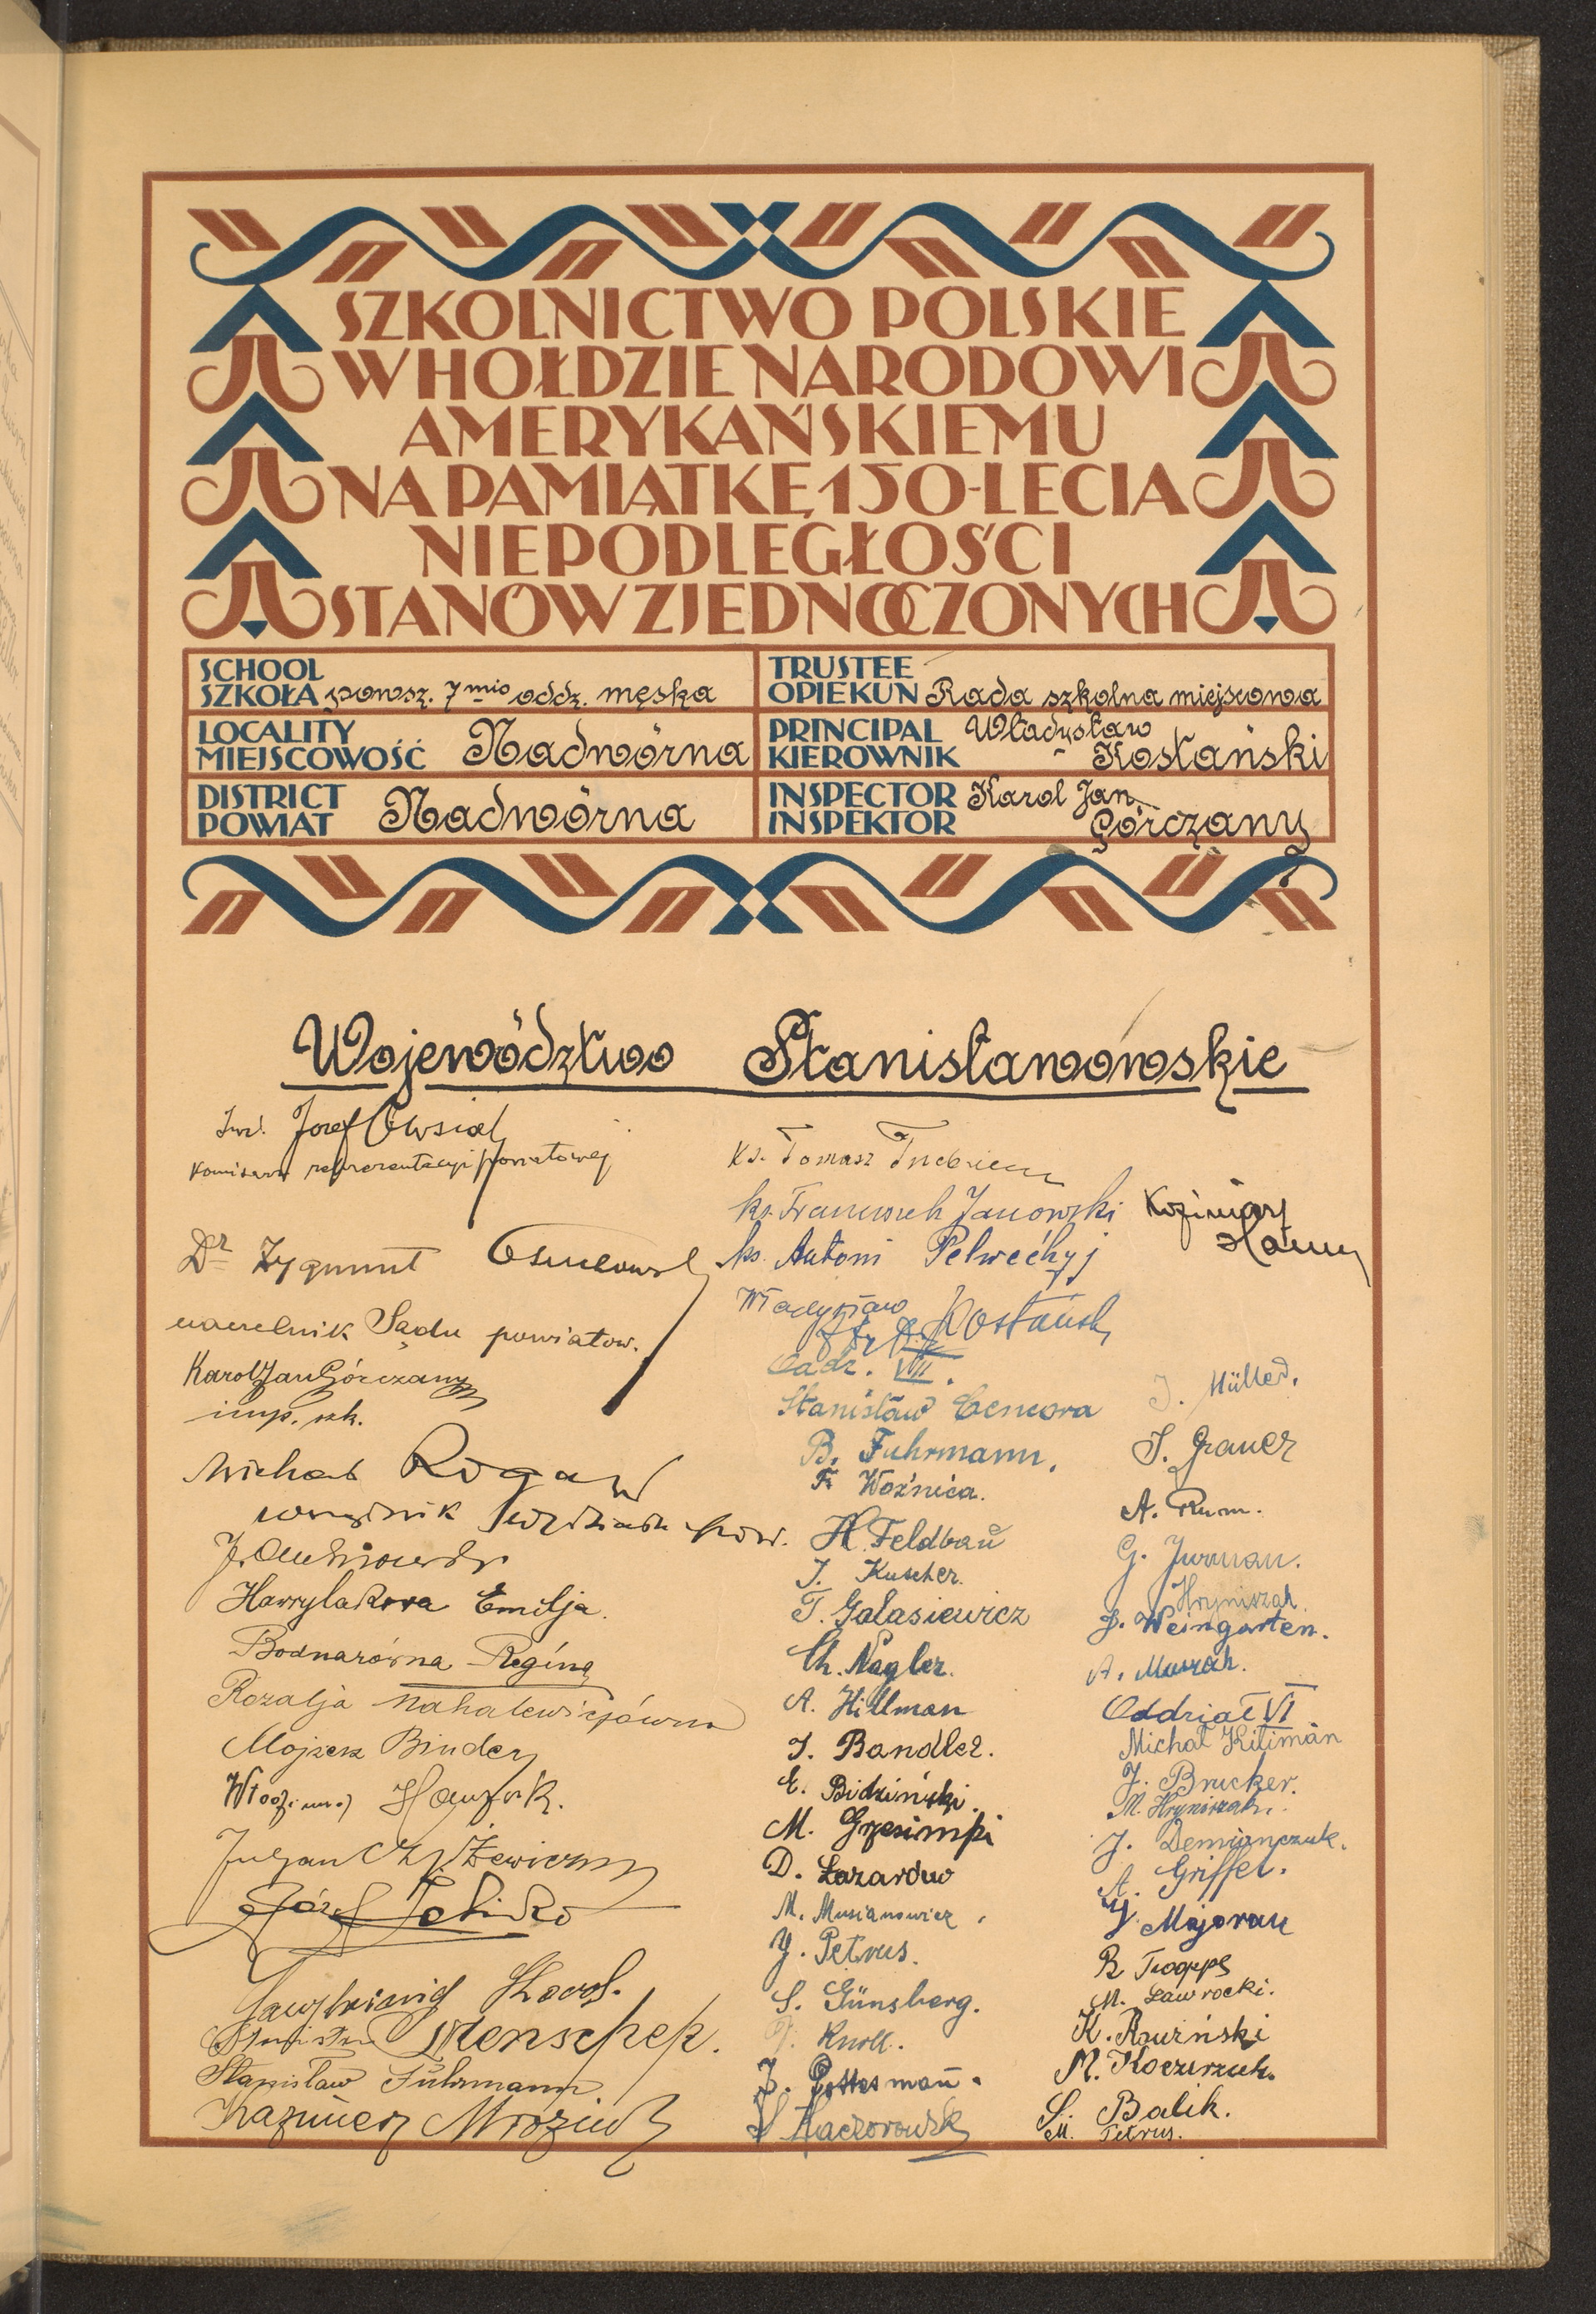 SZKOLNICTWO POLSKIE
W HOŁDZIE NARODOWI
AMERYKAŃSKIEMU
NA PAMIĄTKĘ 150-LECIA
NIEPODLEGŁOŚCI
STANÓW ZJEDNOCZONYCH
SCHOOL
SZKOŁA powsz. 7mio oddz. męska
TRUSTEE
OPIEKUN Rada szkolna miejscowa
LOCALITY
MIEJSCOWOŚĆ Nadwórna
PRINCIPAL Władysław
KIEROWNIK Kostański
DISTRICT
POWIAT Nadwórna
INSPECTOR Karol Jan
INSPEKTOR Górczany
Województwo Stanisławowskie
Józef
reprezentacyi powiatowej
Dr Zygmunt
naczelnik Sądu powiatow.
Karol Jan Górczany
insp. szk.
Michał Rogaw
Hawrylakowa Emilja.
Bodnarówna Regina
Rozalja Mahalewiczówna
Mojżesz Binder
Juljan
Józef
Stanisław Fuhrmann
Kazimierz
Ks. Tomasz
ks. Franciszek Janowski
ks. Antoni Pelwećkyj
Władysław Kostański
Oddz. VII.
Stanisław Cencora
B. Fuhrmann.
F. Woźnica.
H. Feldbaū
J. Kuscher.
T. Galasiewicz
Ch. Nagler.
A. Hillman
J. Bandler.
E. Bidziński.
M. Grzesimpi
D. Łazarów
M. Musianowicz.
J. Petrus.
S. Günsberg.
Knoll.
J. Gottesmaū.
Kaczorowski
Kazimierz
J. Müller.
J. Grauer
A. Rum.
G. Jurman.
Hryniszak.
J. Weingarten.
A. Muszak.
Oddział VI
Michał Kitimān
J. Brucker.
M. Hryniszak.
J. Demiańczuk.
A. Griffel.
J. Majoran
M. Ławrocki.
K.
M. Koczerzuk.
S. Balik.
M. Petrus.